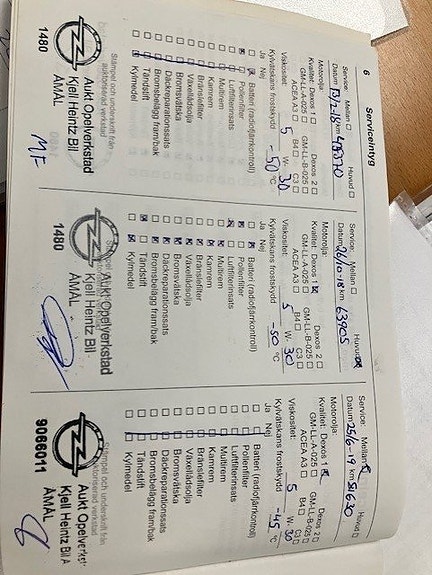 6 Serviceintyg
Service: Mellan ☐ Huvud ☐
Datum 19/2-18 km
Motorolja:
Kvalitet: Dexos 1 ☐ Dexos 2 ☐
GM-LL-A-025 ☐ GM-LL-B-025 ☐
ACEA A3 ☐ B4 ☐ C3 ☐
Viskositet: 5 W- 30
Kylvätskans frostskydd -50 °C
Ja Nej
Batteri (radiofjärrkontroll)
Pollenfilter
Luftfilterinsats
Multirem
Kamrem
Bränslefilter
Växellådsolja
Bromsvätska
Däckreparationssats
Bromsbelägg fram/bak
Tändstift
Kylmedel
Stämpel och underskrift från
auktoriserad verkstad
Aukt Opelverkstad
Kjell Heintz Bil
ÅMÅL
1480
MF
Service: Mellan ☐ Huvud ☒
Datum 26/10-18 km 63905
Motorolja:
Kvalitet: Dexos 1 ☒ Dexos 2 ☐
GM-LL-A-025 ☐ GM-LL-B-025 ☐
ACEA A3 ☐ B4 ☐ C3 ☐
Viskositet: 5 W- 30
Kylvätskans frostskydd -50 °C
Ja Nej
Batteri (radiofjärrkontroll)
Pollenfilter
Luftfilterinsats
Multirem
Kamrem
Bränslefilter
Växellådsolja
Bromsvätska
Däckreparationssats
Bromsbelägg fram/bak
Tändstift
Kylmedel
Aukt Opelverkstad
Kjell Heintz Bil
ÅMÅL
1480
Service: Mellan ☒ Huvud ☐
Datum 25/6-19 km
Motorolja:
Kvalitet: Dexos 1 ☒ Dexos 2 ☐
GM-LL-A-025 ☐ GM-LL-B-025 ☐
ACEA A3 ☐ B4 ☐ C3 ☐
Viskositet: 5 W- 30
Kylvätskans frostskydd -45 °C
Ja Nej
Batteri (radiofjärrkontroll)
Pollenfilter
Luftfilterinsats
Multirem
Kamrem
Bränslefilter
Växellådsolja
Bromsvätska
Däckreparationssats
Bromsbelägg fram/bak
Tändstift
Kylmedel
Stämpel och underskrift från
auktoriserad verkstad
Aukt Opelverkst
Kjell Heintz Bil A
ÅMÅL
9066011